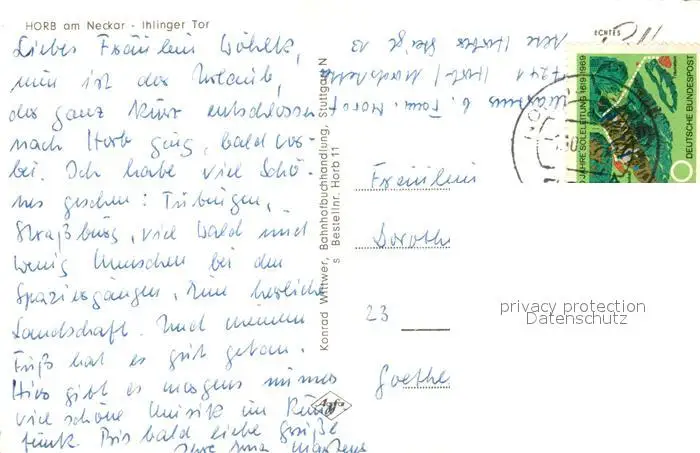 HORB am Neckar - Ihlinger Tor
Liebes Fräulein Wöhlk,
nun ist der Urlaub,
der ganz kurz entschlossen
nach Horb ging, bald vor-
bei. Ich habe viel Schö-
nes gesehen: Tübingen,
Straßburg, viel Wald und
wenig Menschen bei den
Spaziergängen. Eine herrliche
Landschaft. Und meinem
Fuß hat es gut getan.
Hier gibt es morgens immer
viel schöne Musik im Rund
funk. Bis bald liebe Grüße
Ihre
Konrad Wittwer, Bahnhofbuchhandlung, Stuttgart N
s Bestellnr. Horb 11
Agfa
ECHTES
b. Fam.
7241
13
JAHRE SOLELEITUNG 1619-1969
DEUTSCHE BUNDESPOST
Fräulein
Dorothe
23
Goethe
privacy protection
Datenschutz